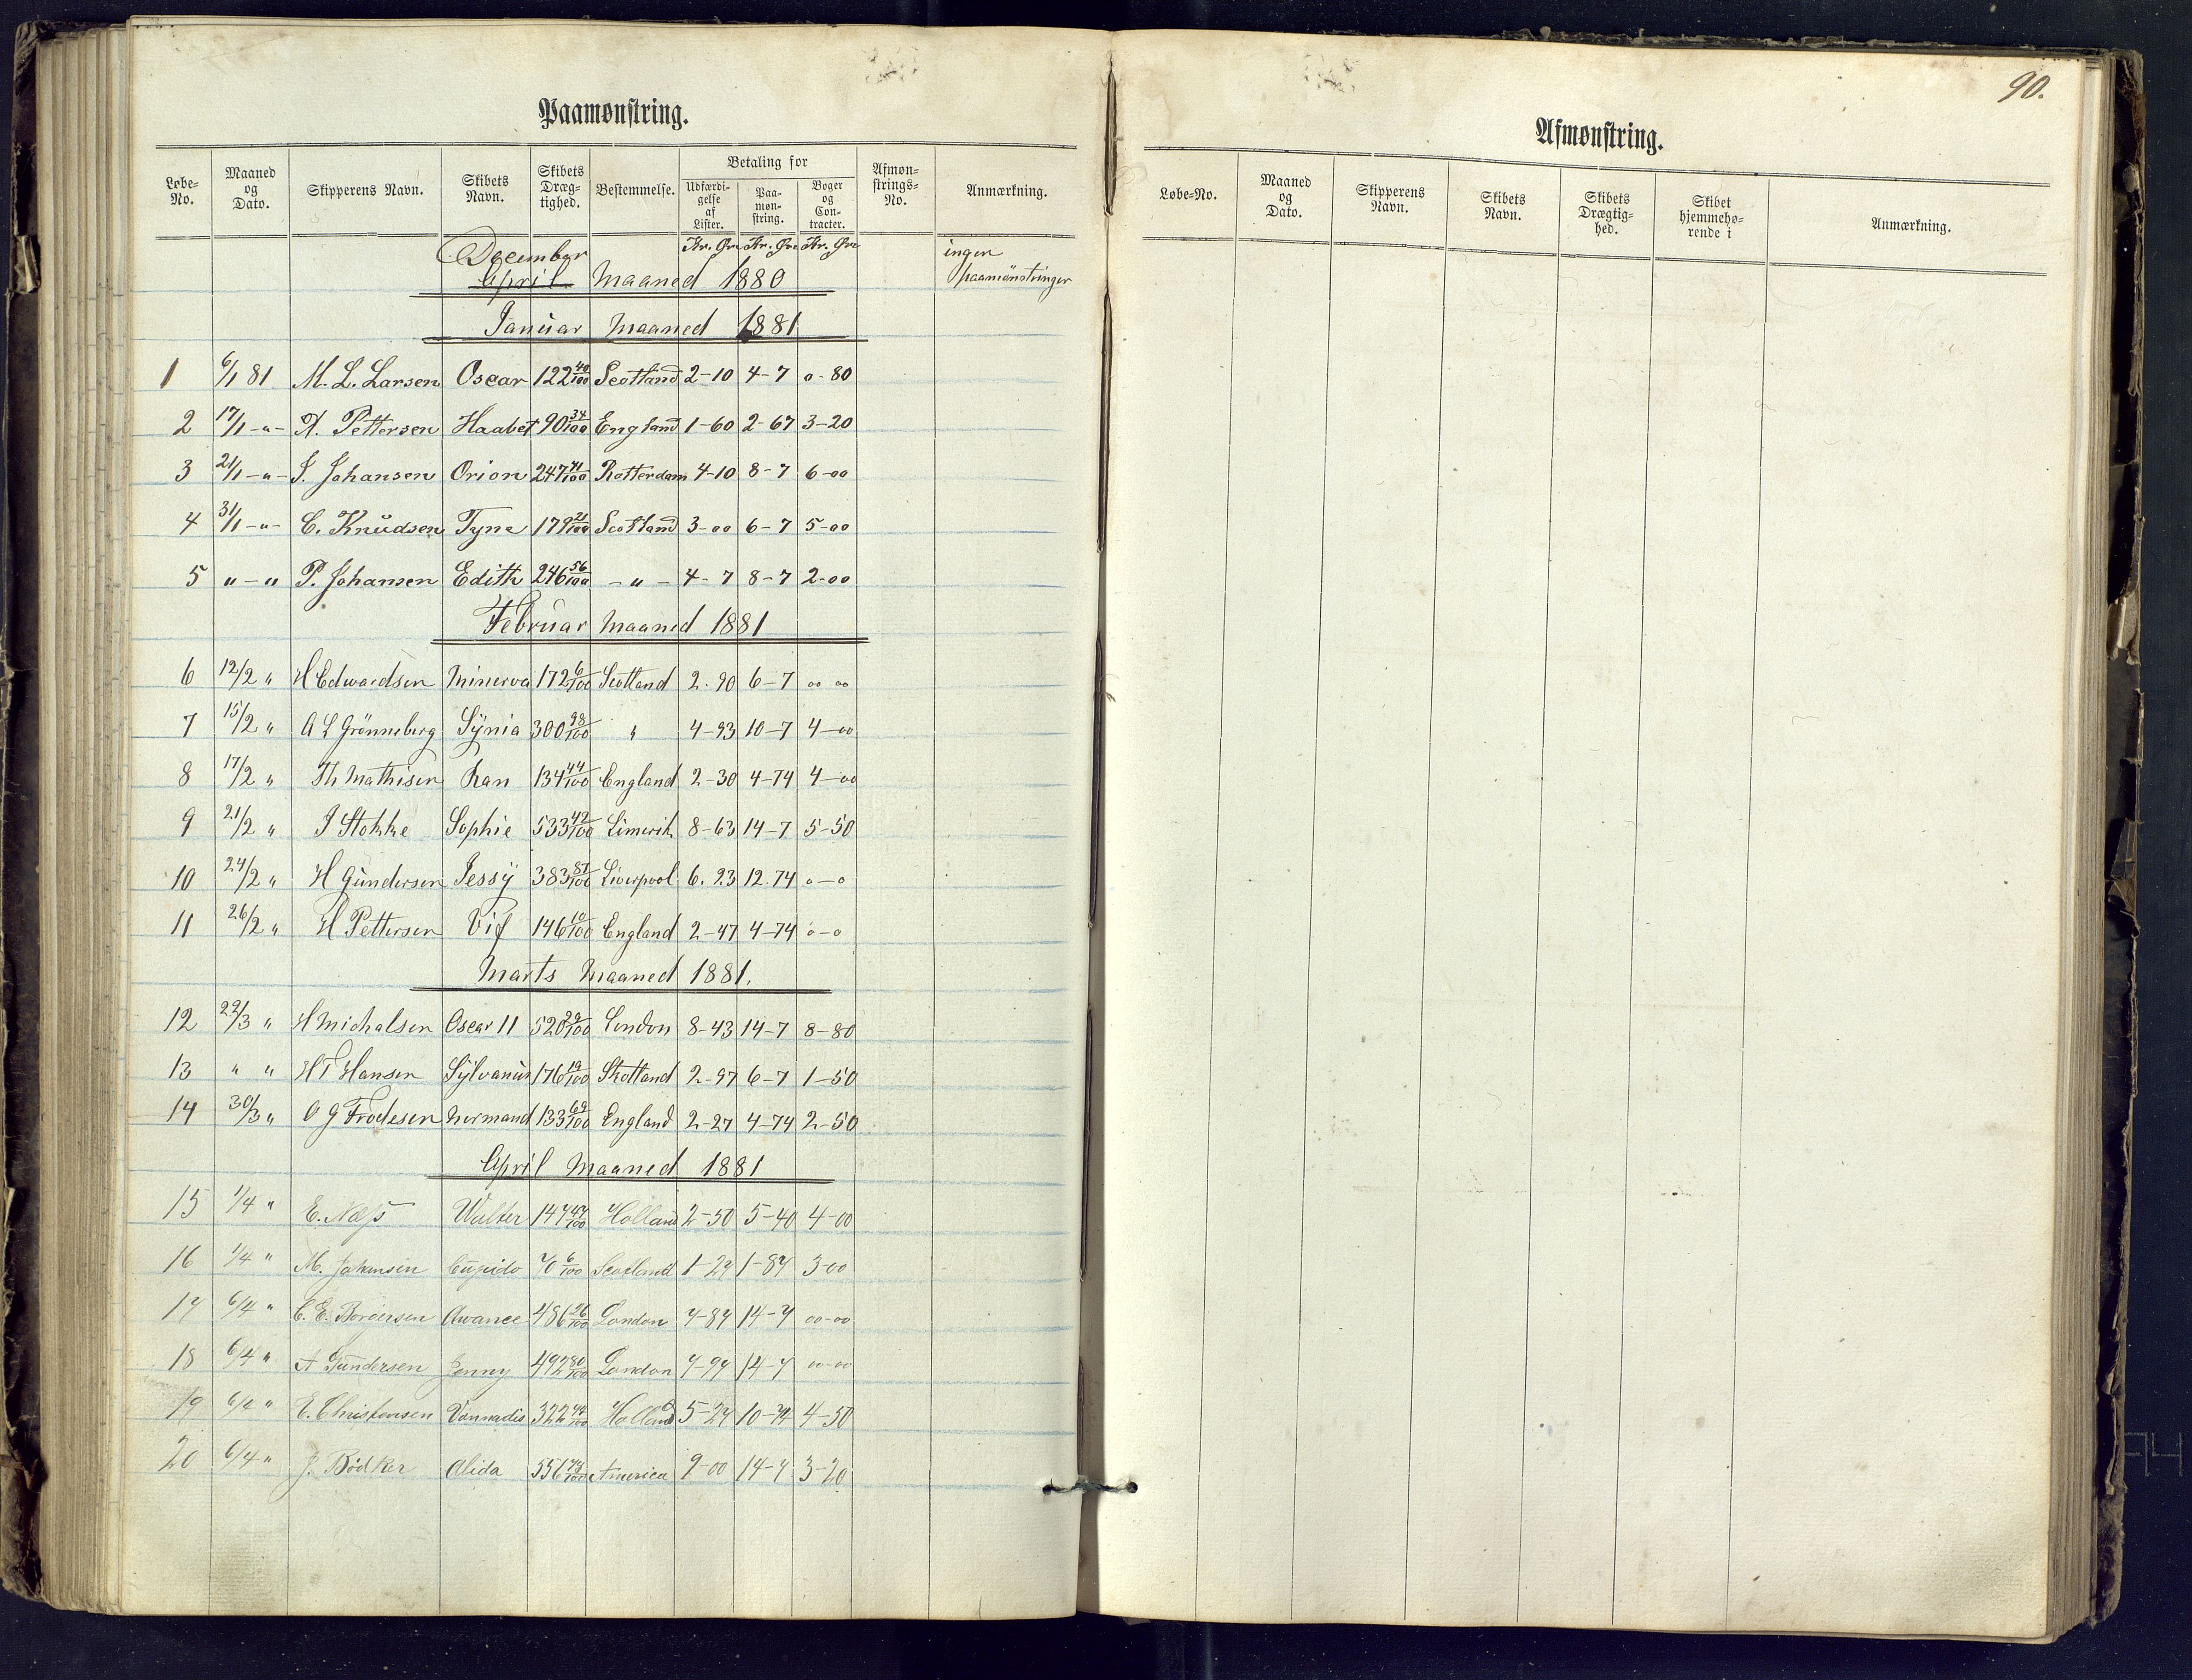 90.
Paamønstring.
Løbe-No. Maaned og Dato. Skipperens Navn. Skibets Navn. Skibets Dræg-tighed. Bestemmelse. Betaling for Udfærdi-gelse af Lister. Paa-møn-string. Bøger og Con-tracter. Afmøn-strings-No. Anmærkning.
Kr. Øre Kr. Øre Kr. Øre
December ingen
April Maaned 1880 paamönstringer
Januar Maaned 1881
1 6/1 81 M. L. Larsen Oscar 122 40/100 Scotland 2-10 4-7 0-80
2 17/1 -"- A. Pettersen Haabet 90 34/100 England 1-60 2-67 3-20
3 21/1 -"- J. Johansen Orion 247 41/100 Rotterdam 4-10 8-7 6-00
4 31/1 -"- C. Knudsen Tyne 179 21/100 Scotland 3-00 6-7 5-00
5 "-" P. Johansen Edith 246 56/100 -"- 4-7 8-7 2-00
Februar Maaned 1881
6 12/2 " H Edwardsen Minerva 172 6/100 Scotland 2.90 6-7 00 00
7 15/2 " A L Grönneberg Synia 300 98/100 " 4-93 10-7 4-00
8 17/2 " Th Mathisen Ran 134 44/100 England 2-30 4-74 4-00
9 21/2 " J Stokke Sophie 533 42/100 Limerik 8-63 14-7 5-50
10 24/2 " H Gundersen Jessy 383 87/100 Liverpool 6.23 12.74 0-0
11 26/2 " H Pettersen Vif 146 10/100 England 2-47 4-74 0-0
Marts Maaned 1881.
12 22/3 " H Michalsen Oscar II 520 29/100 London 8-43 14-7 8-80
13 " " H T Hansen Sylvanus 176 19/100 Skotland 2-97 6-7 1-50
14 30/3 " O G Frodesen Normand 133 69/100 England 2-27 4-74 2-50
April Maaned 1881
15 1/4 " E. Næss Walter 147 47/100 Holland 2-50 5-40 4-00
16 1/4 " M. Johansen Cupido 70 6/100 Scotland 1-27 1-87 3-00
17 6/4 " C. E. Avance 486 26/100 London 7-87 14-7 00-00
18 6/4 " A Gundersen Jenny 492 80/100 London 7-97 14-7 00-00
19 6/4 " E. Christensen Vannadis 322 44/100 Holland 5-27 10-74 4-50
20 6/4 " J. Bödker Alida 556 America 9-00 14-7 3-20
Afmønstring.
Løbe-No. Maaned og Dato. Skipperens Navn. Skibets Navn. Skibets Drægtig-hed. Skibet hjemmehø-rende i Anmærkning.